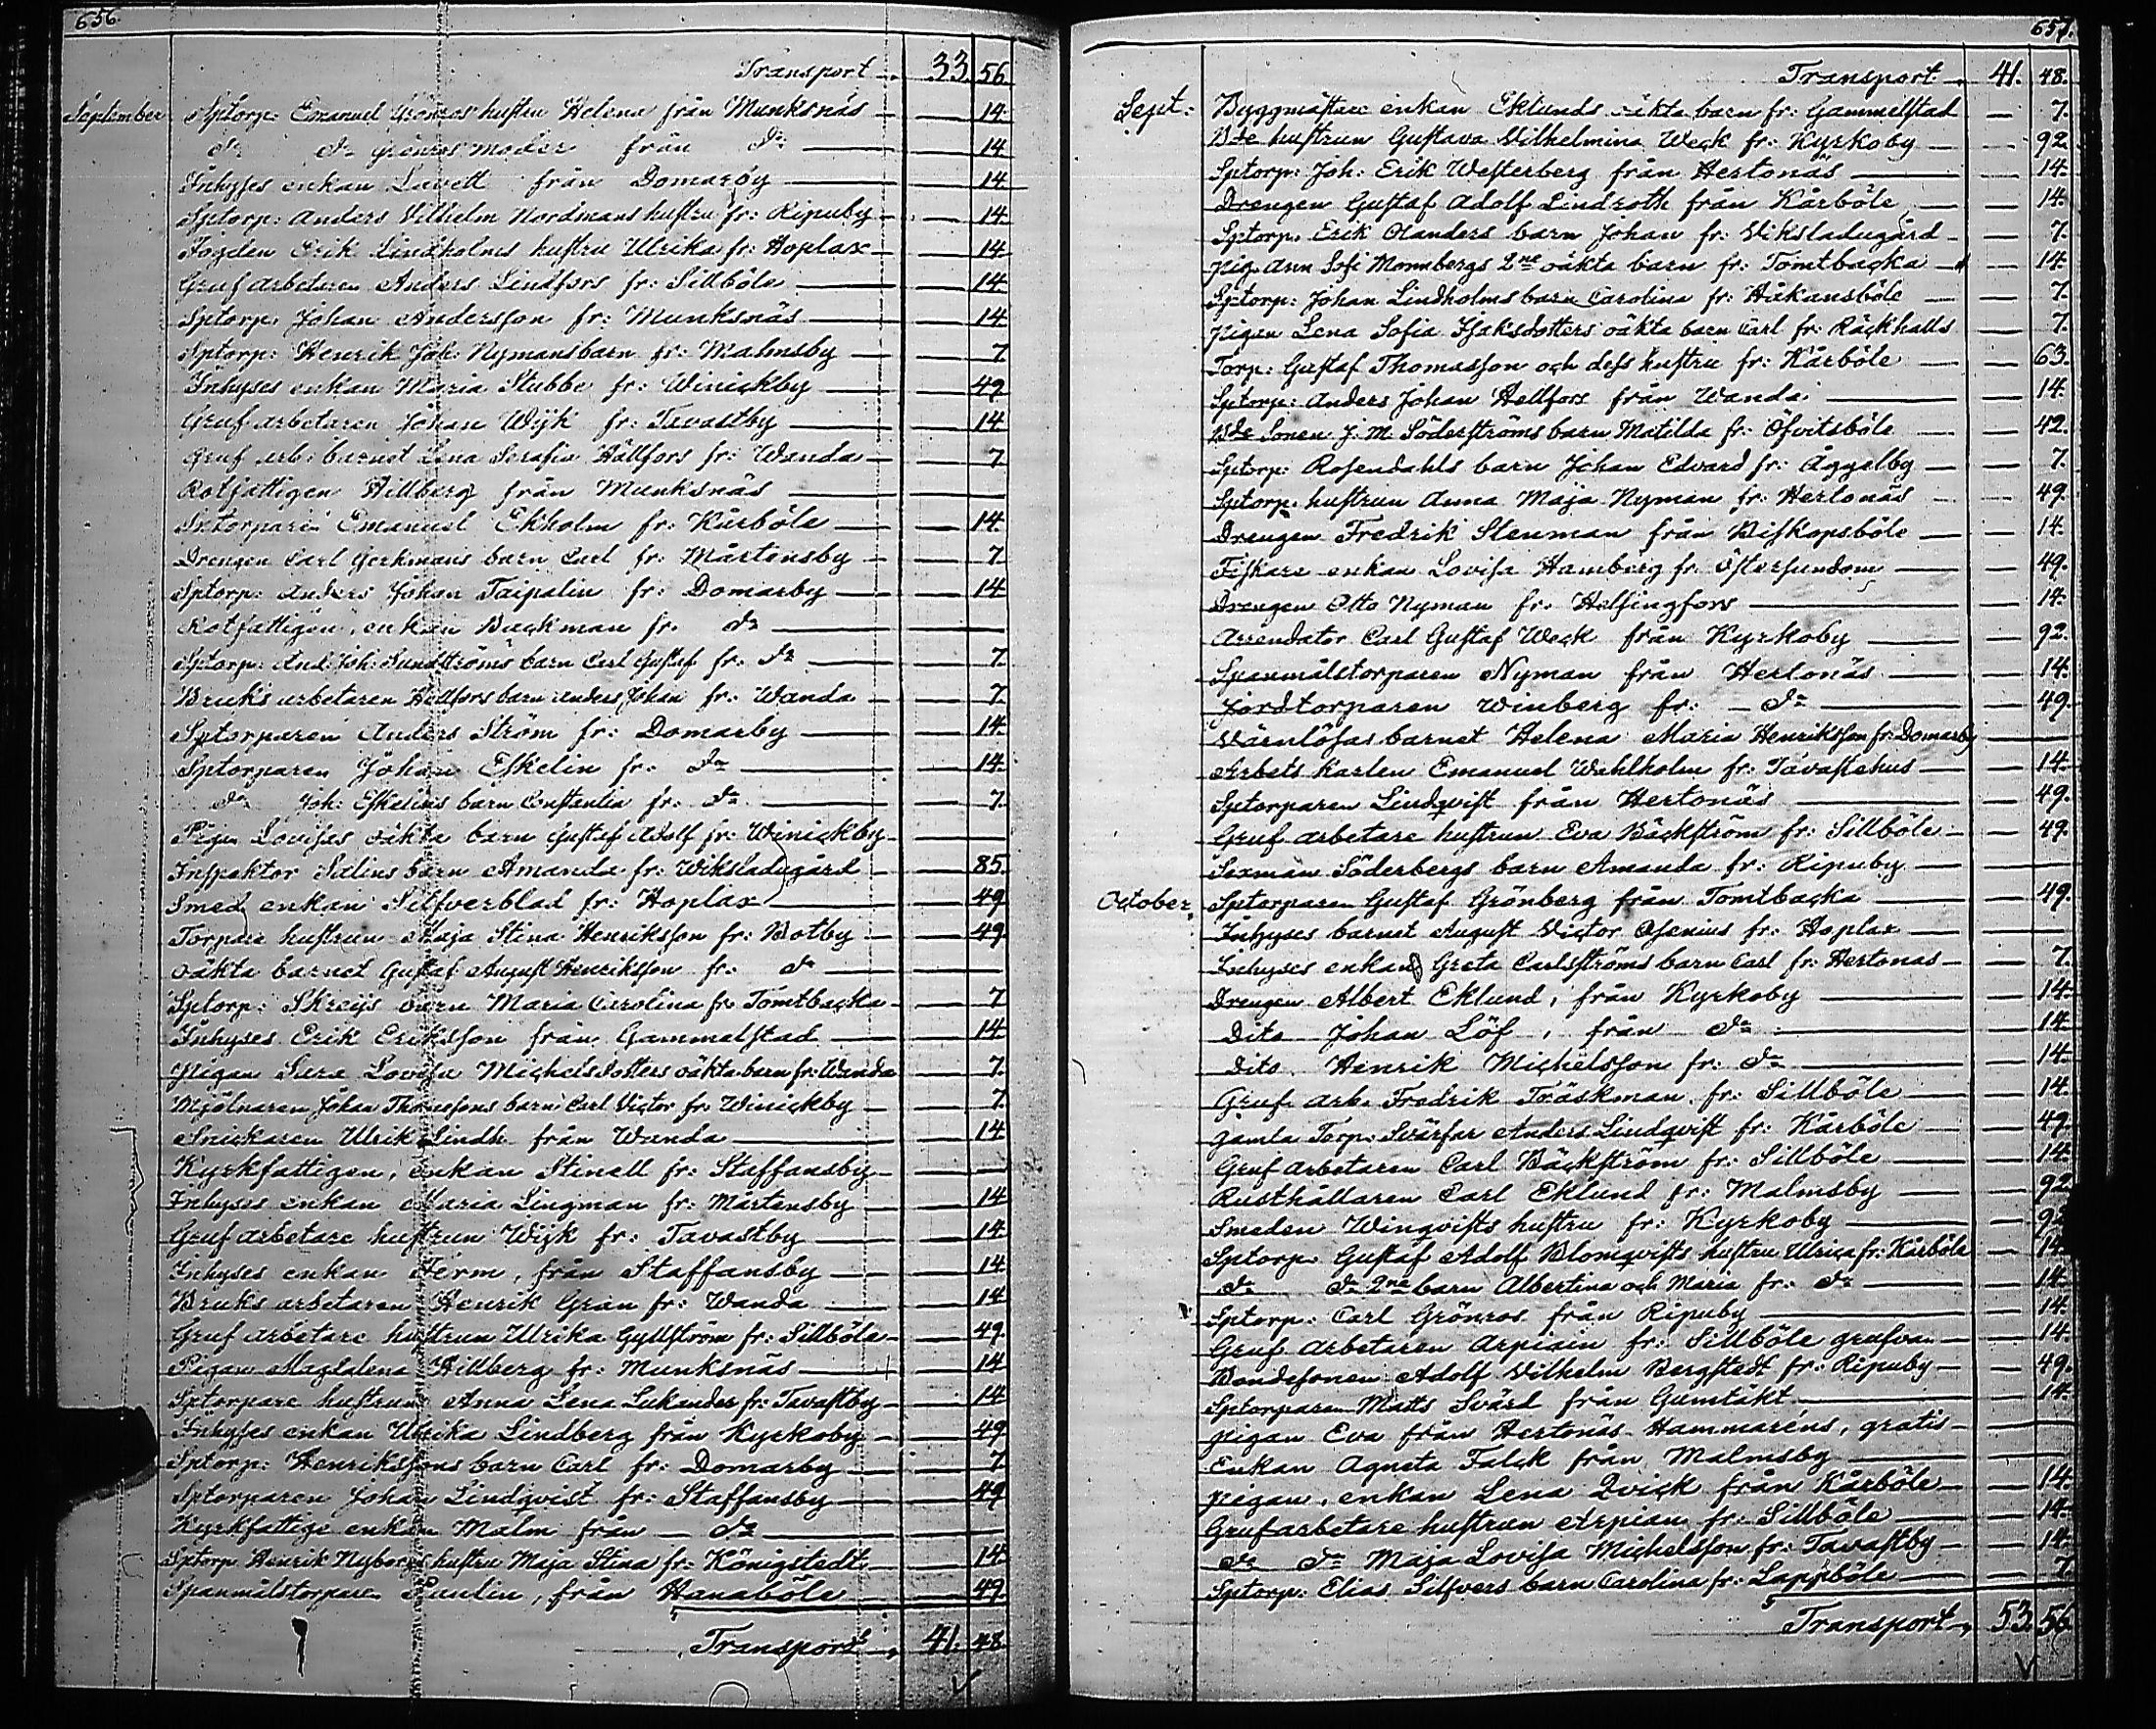 656.
Transport 33 56
September Sptorp: Emanuel Grönros hustru Helena från Munksnäs — 14.
do do Grönros moder från do — 14.
Inhyses enkan Lavett från Domarby — 14.
Sptorp: Anders Vilhelm Nordmans hustru fr: Ripuby — 14.
Fogden Erik Lindholms hustru Ulrika fr: Hoplax — 14.
Grufarbetaren Anders Lindfors fr: Sillböle — 14.
Sptorp: Johan Andersson fr: Munksnäs — 14.
Sptorp: Henrik Joh: Nymans barn fr: Malmsby — 7
Inhyses enkan Maria Stubbe fr: Winickby — 49.
Grufarbetaren Johan Wijk fr: Tavastby — 14
Gruf arb: barnet Lena Serafia Hällfors fr: Wanda — 7.
Rotfattigen Hillberg från Munksnäs —
Sptorparen Emanuel Ekholm fr: Kårböle — 14.
Drengen Carl Gerkmans barn Carl fr: Mårtensby — 7.
Sptorp: Anders Johan Taipalin fr: Domarby — 14
Rotfattigen, enkan Backman fr. do —
Sptorp: And: Joh: Sundströms barn Carl Gustaf fr. do — 7.
Bruks arbetaren Hellfors barn Anders Johan fr: Wanda — 7.
Sptorparen Anders Ström fr: Domarby — 14.
Sptorparen Johan Eskelin fr: do — 14.
do Joh: Eskelins barn Constantia fr. do — 7.
Pigan Lovisas oäkta barn Gustaf Adolf fr: Winickby —
Inspektor Salins barn Amanda fr: Wiksladugård — 85.
Smed enkan Silfverblad fr: Hoplax — 49
Torpare hustrun Maja Stina Henriksson fr: Botby — 49
oäkta barnet Gustaf August Henriksson fr: do —
Sptorp: Skreijs barn Maria Carolina fr Tomtbacka — 7
Inhyses Erik Eriksson från Gammelstad — 14.
Pigan Sara Lovisa Michelsdotters oäkta barn fr: Wanda 7.
Mjölnaren Johan Thomassons barn Carl Victor fr. Winickby — 7.
Snickaren Ulrik Lindh från Wanda — 14
Kyrkfattigen, enkan Stinell fr: Staffansby —
Inhyses enkan Maria Lingman fr: Mårtensby — 14
Grufarbetare hustrun Wijk fr: Tavastby — 14.
Inhyses enkan Ferm, från Staffansby — 14
Bruks arbetaren Henrik Gran fr: Wanda — 14
Gruf arbetare hustrun Ulrika Gyllström fr: Sillböle — 49.
Pigan Magdalena Hillberg fr: Munksnäs — 14
Sptorpare hustrun Anna Lena Lukander fr: Tavastby — 14.
Inhyses enkan Ulrika Lindberg från Kyrkoby — 49
Sptorp: Henrikssons barn Carl fr: Domarby — 7
Sptorparen Johan Lindqvist fr: Staffansby — 49
Kyrkfattige enkan Malm från — do —
Sptorp Henrik Nybergs hustru Maja Stina fr: Königstedt — 14.
Spanmålstorparen Paulin, från Hanaböle — 49.
Transport 41. 48
657.
Transport 41. 48.
Sept: Byggmästare enkan Eklunds oäkta barn fr: Gammelstad — 7.
Bde hustrun Gustava Vilhelmina Weck fr: Kyrkoby — 92.
Sptorp: Joh: Erik Westerberg från Hertonäs — 14.
Drengen Gustaf Adolf Lindroth från Kårböle — 14.
Sptorp. Erik Olanders barn Johan fr: Viksladugård — 7.
Pig. Ann Sofi Monnbergs 2ne oäkta barn fr: Tomtbacka — 14.
Sptorp: Johan Lindholms barn Carolina fr: Håkansböle — 7.
Pigan Lena Sofia Isaksdotters oäkta barn Carl fr: Räckhalls 7.
Torp: Gustaf Thomasson och dess hustru fr: Kårböle — 63.
Sptorp: Anders Johan Hellfors från Wanda — 14.
Bde Sonen J. M. Söderströms barn Matilda fr: Öfvitsböle — 42.
Sptorp: Rosendahls barn Johan Edvard fr: Åggelby — 7.
Sptorp: hustrun Anna Maja Nyman fr: Hertonäs — 49.
Drengen Fredrik Stenman från Biskopsböle — 14.
Fiskare enkan Lovisa Hamberg fr. Östersundom — 49.
Drengen Otto Nyman fr. Helsingfors — 14.
Arrendator Carl Gustaf Weck från Kyrkoby — 92.
Spanmålstorparen Nyman från Hertonäs — 14.
Jordtorparen Winberg fr: — do — 49.
Värnlösas barnet Helena Maria Henriksson fr: Domarby —
Arbets Karlen Emanuel Wahlholm fr: Tavastehus — 14.
Sptorparen Lindqvist från Hertonäs — 49.
Gruf arbetare hustrun Eva Bäckström fr: Sillböle — 49.
Sexman Söderbergs barn Amanda fr: Ripuby —
October, Sptorparen Gustaf Grönberg från Tomtbacka — 49.
Inhyses barnet August Victor Osenius fr: Hoplax —
Inhyses enkan Greta Carlströms barn Carl fr: Hertonas — 7.
Drengen Albert Eklund, från Kyrkoby — 14.
Dito Johan Löf, från do — 14.
Dito Henrik Michelsson fr: do — 14
Gruf arb. Fredrik Träskman fr: Sillböle — 14.
gamla Torp: Svärfar Anders Lindqvist fr: Kårböle — 49.
Grufarbetaren Carl Bäckström fr: Sillböle — 14.
Rusthållaren Carl Eklund fr: Malmsby — 92
Smeden Winqvists hustru fr: Kyrkoby — 92
Sptorp. Gustaf Adolf Blomqvists hustru Ulrica fr: Kårböle — 14.
do do 2ne barn Albertina och Maria fr: do — 14.
Sptorp: Carl Grönros från Ripuby — 14.
Gruf arbetaren Arpiain fr: Sillböle grufvan — 14.
Bondesonen Adolf Vilhelm Bergstedt fr: Ripuby — 49.
Sptorparen Matts Svärd från Gumtäkt — 14.
pigan Eva från Hertonäs Hammarens, gratis —
Enkan Agneta Falck från Malmsby —
pigan, enkan Lena Qvick från Kårböle — 14.
Grufarbetare hustrun Arpian fr: Sillböle — 14.
do do Maja Lovisa Michelsson fr: Tavastby — 14.
Sptorp: Elias Silfvers barn Carolina fr: Lappböle — 7.
Transport 53. 56.